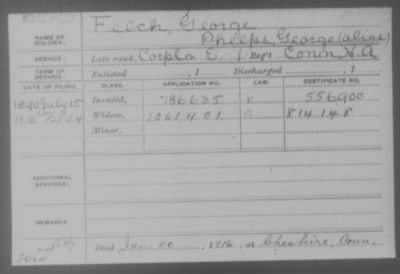 Felch, George
NAME OF SOLDIER: Phelps, George (alias)
SERVICE: Late rank, Corpl Co. E, 1 Reg't Conn H.A
TERM OF SERVICE: Enlisted , 1 Discharged , 1
DATE OF FILING. CLASS. APPLICATION NO. LAW. CERTIFICATE NO.
1890 July 15 Invalid, 786635 556900
1916 Feb 24 Widow, 1061401 814148
Minor,
ADDITIONAL SERVICES:
REMARKS:
Died Jan 20, 1916, at Cheshire, Conn.